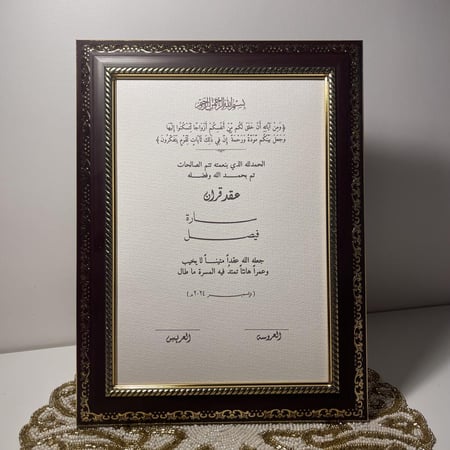 بسم الله الرحمن الرحيم
﴿وَمِنْ آيَاتِهِ أَنْ خَلَقَ لَكُم مِّنْ أَنفُسِكُمْ أَزْوَاجًا لِّتَسْكُنُوا إِلَيْهَا
وَجَعَلَ بَيْنَكُم مَّوَدَّةً وَرَحْمَةً إِنَّ فِي ذَلِكَ لَآيَاتٍ لِّقَوْمٍ يَتَفَكَّرُونَ﴾
الحمدلله الذي بنعمته تتم الصالحات
تم بحمد الله وفضله
عقد قران
سارة
فيصل
جعله الله عقداً متيناً لا يخيب
وعمراً هانئاً تمتدُ فيه المسرة ما طال
(ديسمبر ٢٠٢٤م)
العروسة
العريس